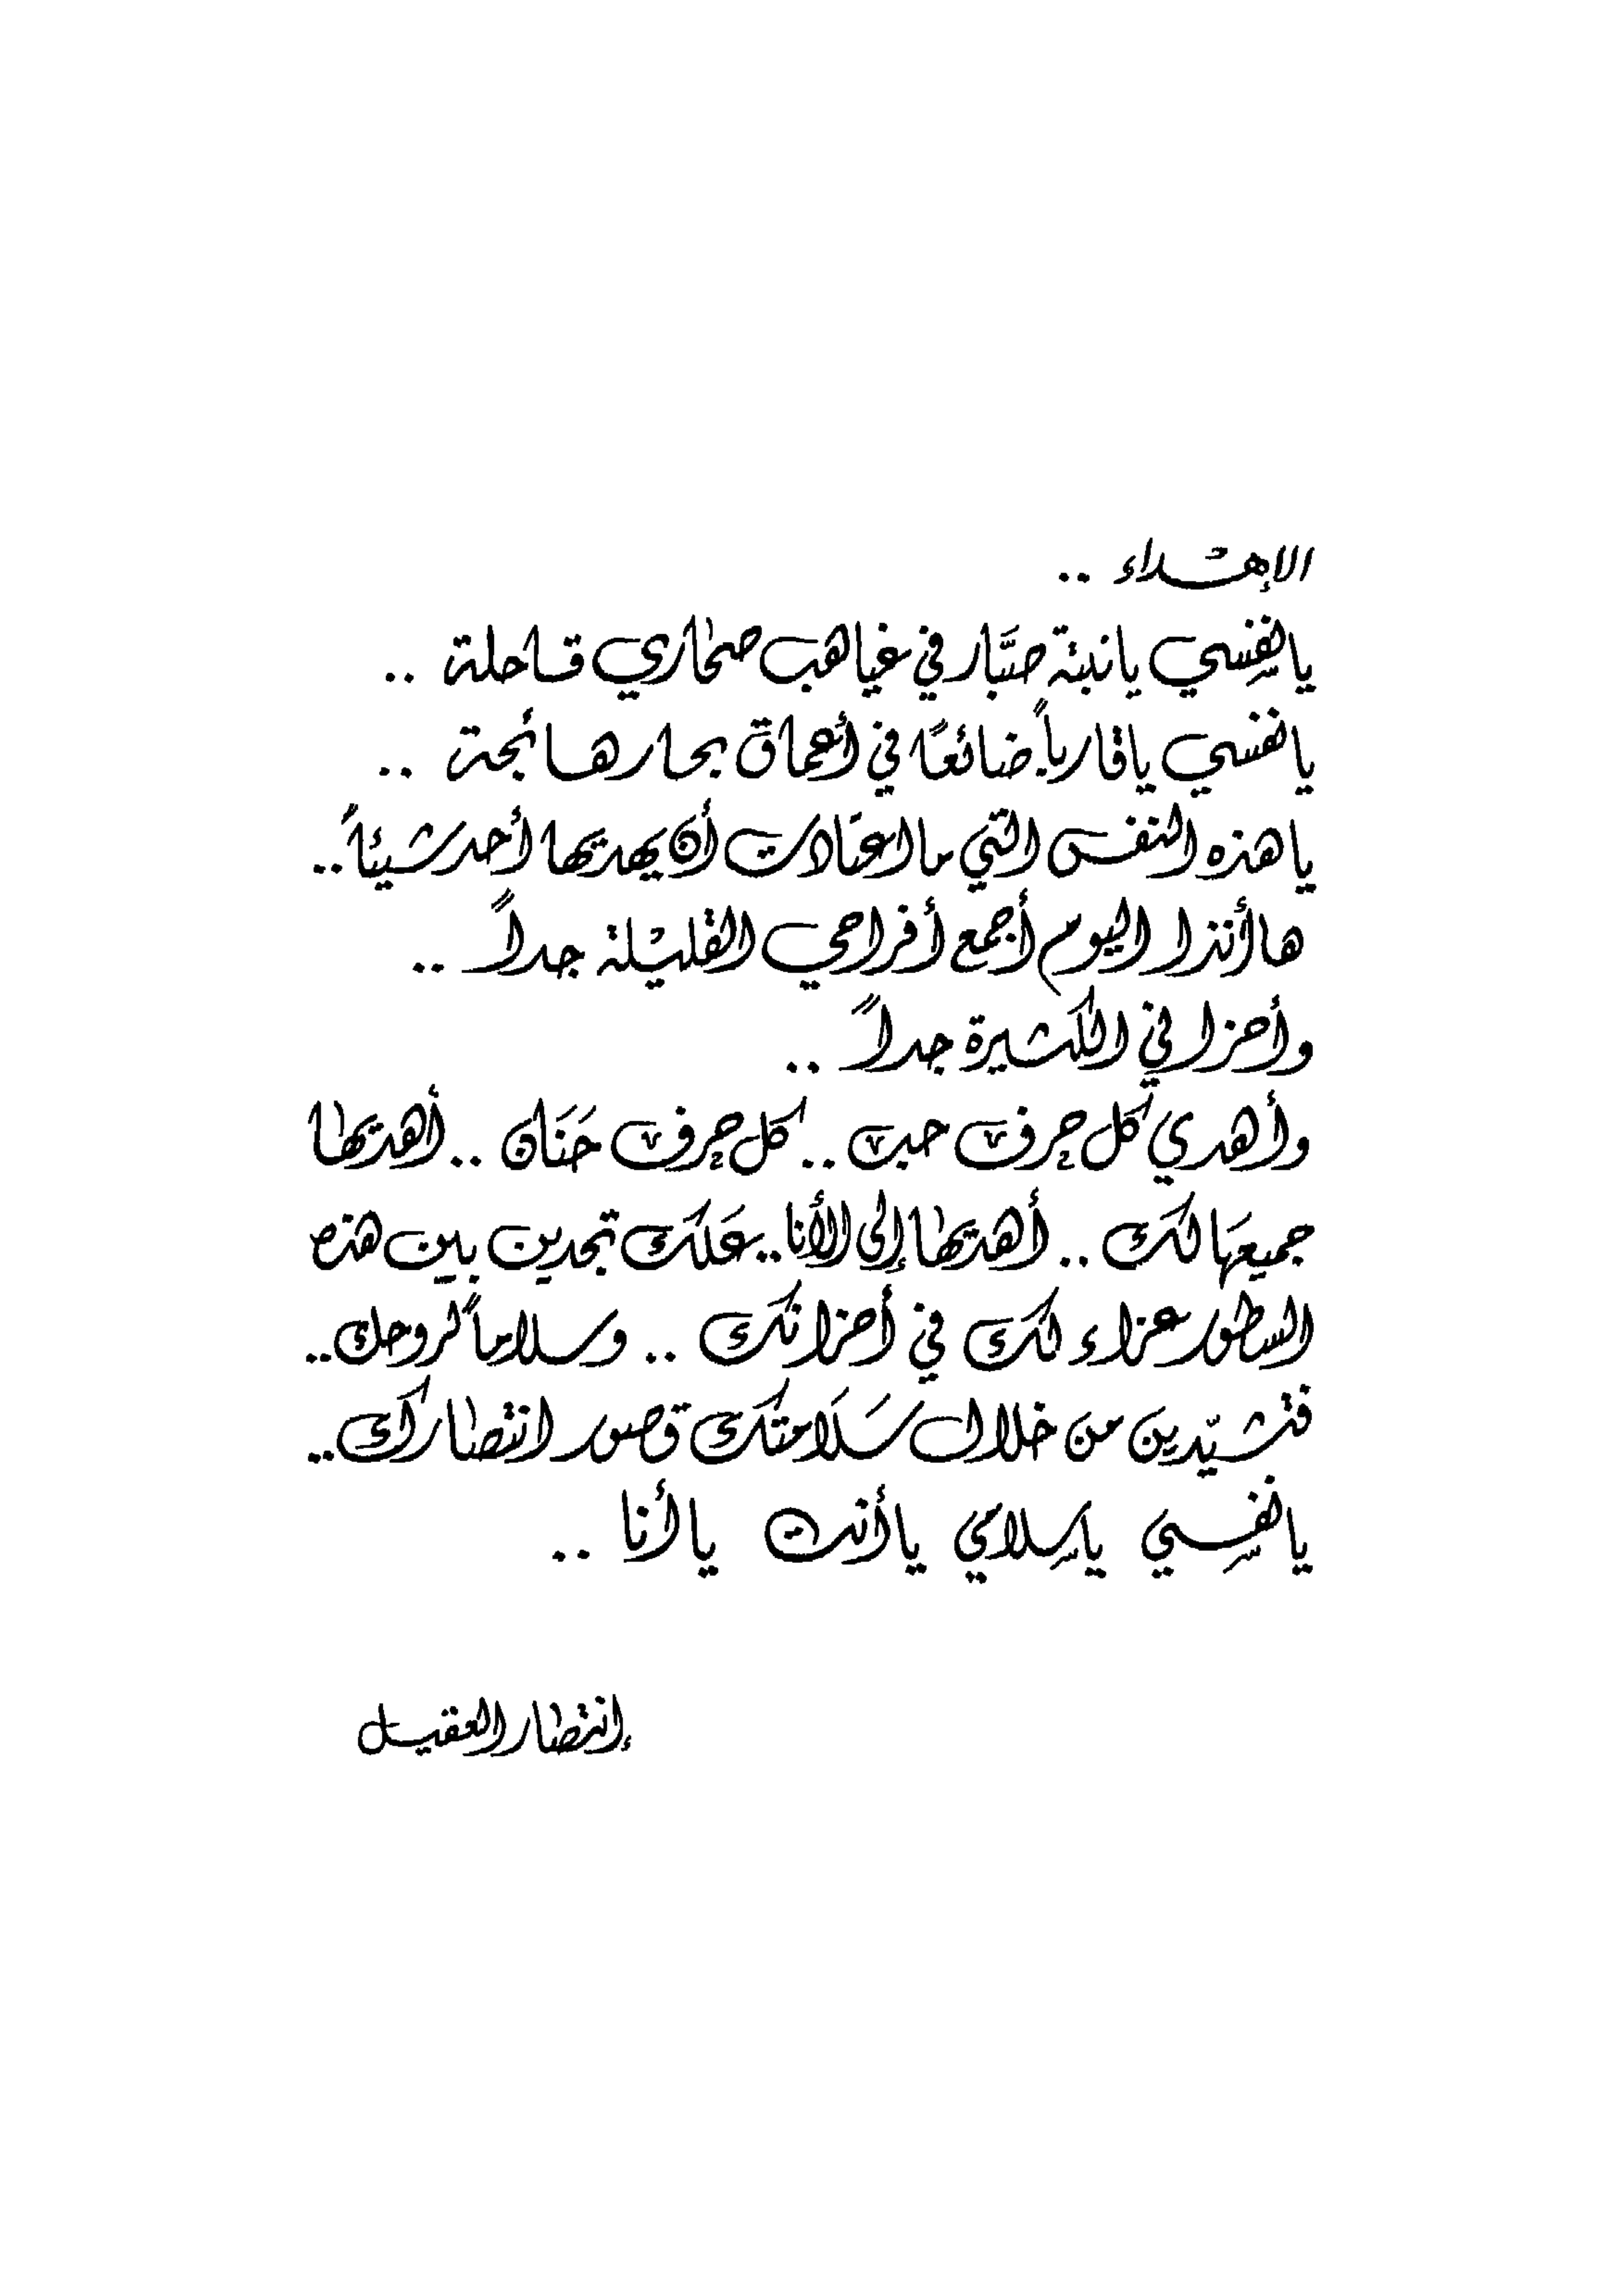 الإهداء ..
يا نفسي يا نبتة صبَّار في غياهب صحاري قاحلة ..
يا نفسي يا قارباً ضائعًا في أعماق بحار هائجة ..
يا هذه النفس التي ما اعتَادت أن يهديها أحد شيئاً ..
ها أنذا اليوم أجمع أفراحي القليلة جداً ..
وأحزاني الكثيرة جداً ..
وأهدي كل حرف حب .. كل حرف حَنَان .. أهديها
جميعَها لك .. أهديها إلى الأنا .. عَلك تجدين بين هذه
السطور عزاء لك في أحزانك .. وسلاماً لروحك ..
فتشيّدين من خلال سَلَامتك قصور انتصارك ..
يا نفسِي يا سِلامي يا أنت يا أنا ..
إنتصار العقيل